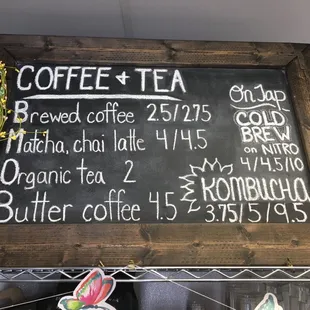 COFFEE + TEA
Brewed coffee 2.5/2.75
Matcha, chai latte 4/4.5
Organic tea 2
Butter coffee 4.5
On Tap
COLD
BREW
ON NITRO
4/4.5/10
KOMBUCHA
3.75/5/9.5